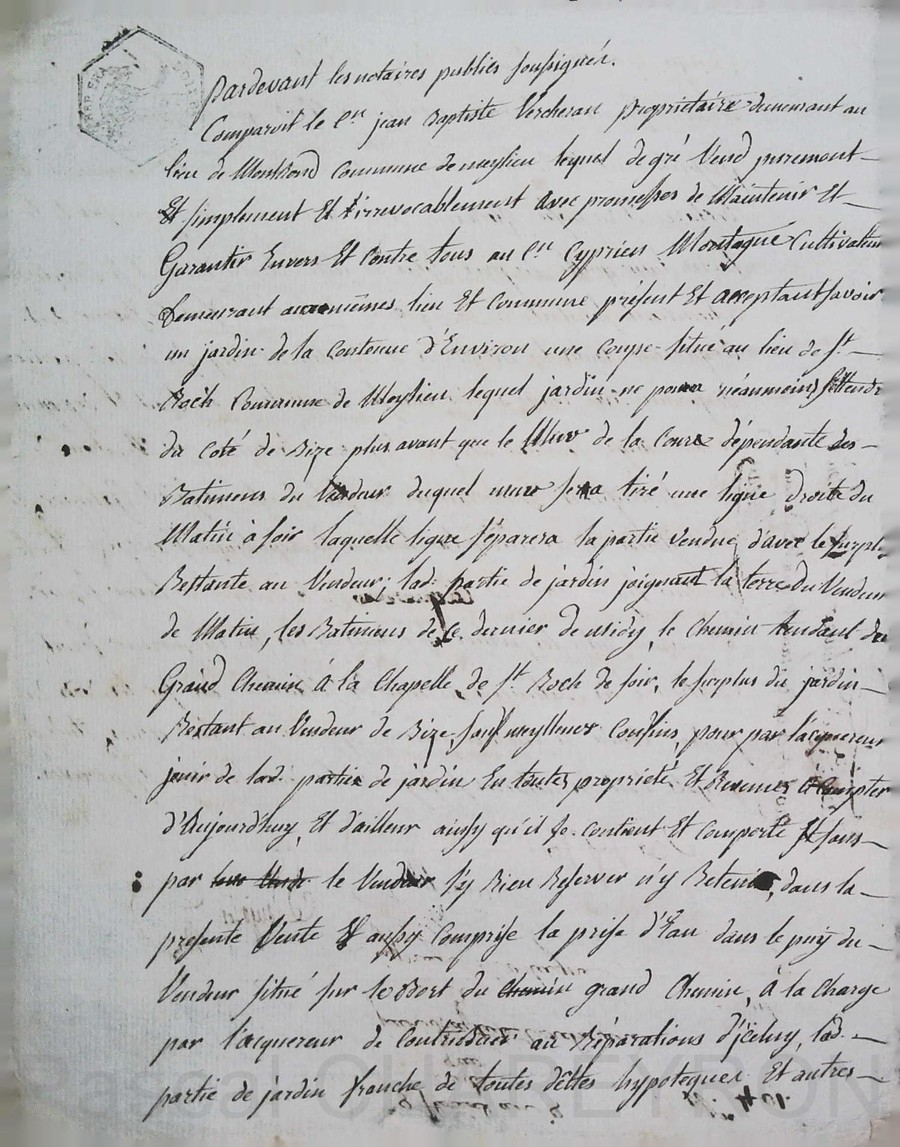 Pardevant les notaires publics soussignés.
Comparoit le Cen jean Baptiste Vercheran propriétaire demeurant au
lieu de Montrond Commune de meylieu lequel de gré Vend purement
Et simplement Et irrevocablement avec promesses de Maintenir Et
Garantir Envers Et Contre tous au Cen Cyprien Montagne Cultivateur
Demeurant au mêmes lieu Et Commune présent Et acceptant savoir
un jardin de la Contenue d'Environ une Coupe situé au lieu de St
Roch Commune de Meylieu lequel jardin ne pourra néanmoins s'Ettendre
du Coté de Bize plus avant que le Mur de la Cour dépendante des
Batimens du Vendeur duquel mur sera tiré une ligne droite du
Matin à soir laquelle ligne séparera la partie Vendue d'avec le surplus
Restante au Vendeur; lad. partie de jardin joignant la terre du Vendeur
de Matin, les Batimens de Ce dernier de midy, le Chemin tendant du
Grand Chemin à la Chapelle de St Roch de soir, le surplus du jardin
Restant au Vendeur de Bize sauf meylleurs Confins, pour par l'acquereur
jouir de lad. partie de jardin En toutes propriété Et Revenus à Compter
d'Aujourdhuy, Et d'ailleur ainsy qu'il se Contient Et Comporte Et sans
par le Vendeur s'y Rien Reserver n'y Retenir, dans la
presente Vente Est aussy Comprise la prise d'Eau dans le puy du
Vendeur situé sur le Bort du Chemin grand Chemin, à la Charge
par l'acquereur de Contribuer au Réparations d'jceluy, lad.
partie de jardin franche de toutes dettes hypoteques Et autres